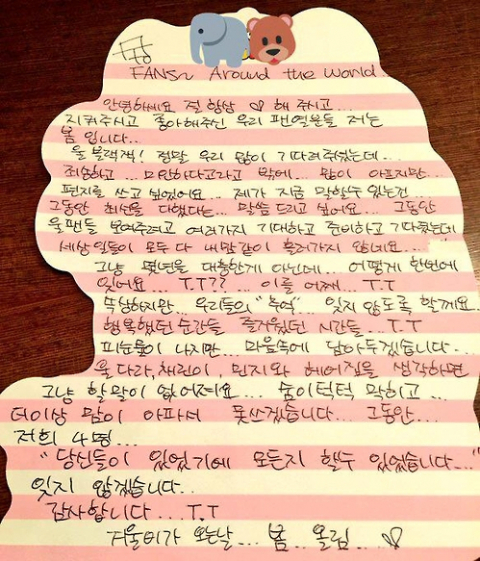 FANS~ Around the World
안녕하세요 절 항상 ♡ 해 주시고...
지켜주시고 좋아해주신 우리 팬 여러분들 저는
봄 입니다...
울 블랙잭! 정말 우리 많이 기다려주셨는데...
죄송하고... 미안하다고라고 밖에... 맘이 아프지만...
편지를 쓰고 싶었어요... 제가 지금 말할수 있는건...
그동안 최선을 다했다는... 말씀 드리고 싶어요... 그동안
울 팬들 보여주려고 여러가지 기대하고 준비하고 기다렸는데
세상일들이 모두 다 내맘같이 흘러가지 않네요...
그냥 몇년을 대충한게 아닌데... 어떻게 한번에
잊어요... T.T?? ... 이를 어째... T.T
속상하지만... 우리들의 "추억"... 잊지 않도록 할께요
행복했던 순간들 즐거웠던 시간들... T.T
피눈물이 나지만... 마음속에 담아두겠습니다...
울 다라, 채린이, 민지와 헤어짐을 생각하면
그냥 할말이 없어져요... 숨이턱턱 막히고...
더이상 맘이 아파서 못쓰겠습니다... 그동안...
저희 4명...
"당신들이 있었기에 모든지 할수 있었습니다..."
잊지 않겠습니다..
감사합니다... T.T
겨울비가 오는날... 봄.. 올림... ♡